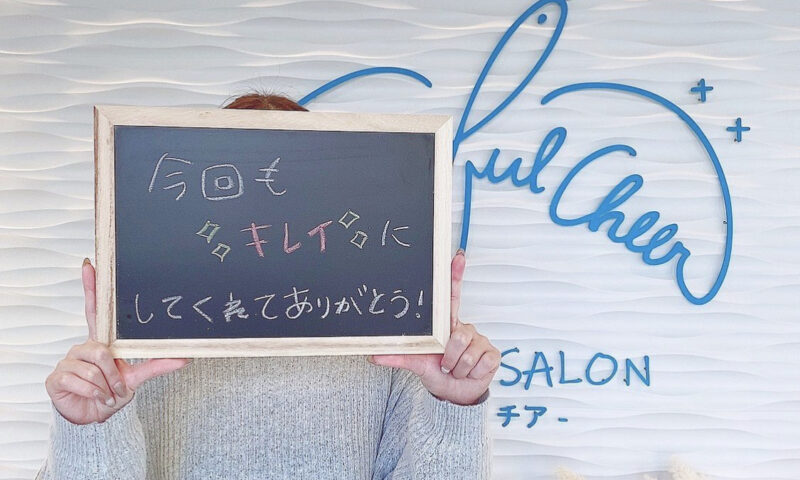 今回も
キレイに
してくれてありがとう!
ful Cheer
SALON
チアー